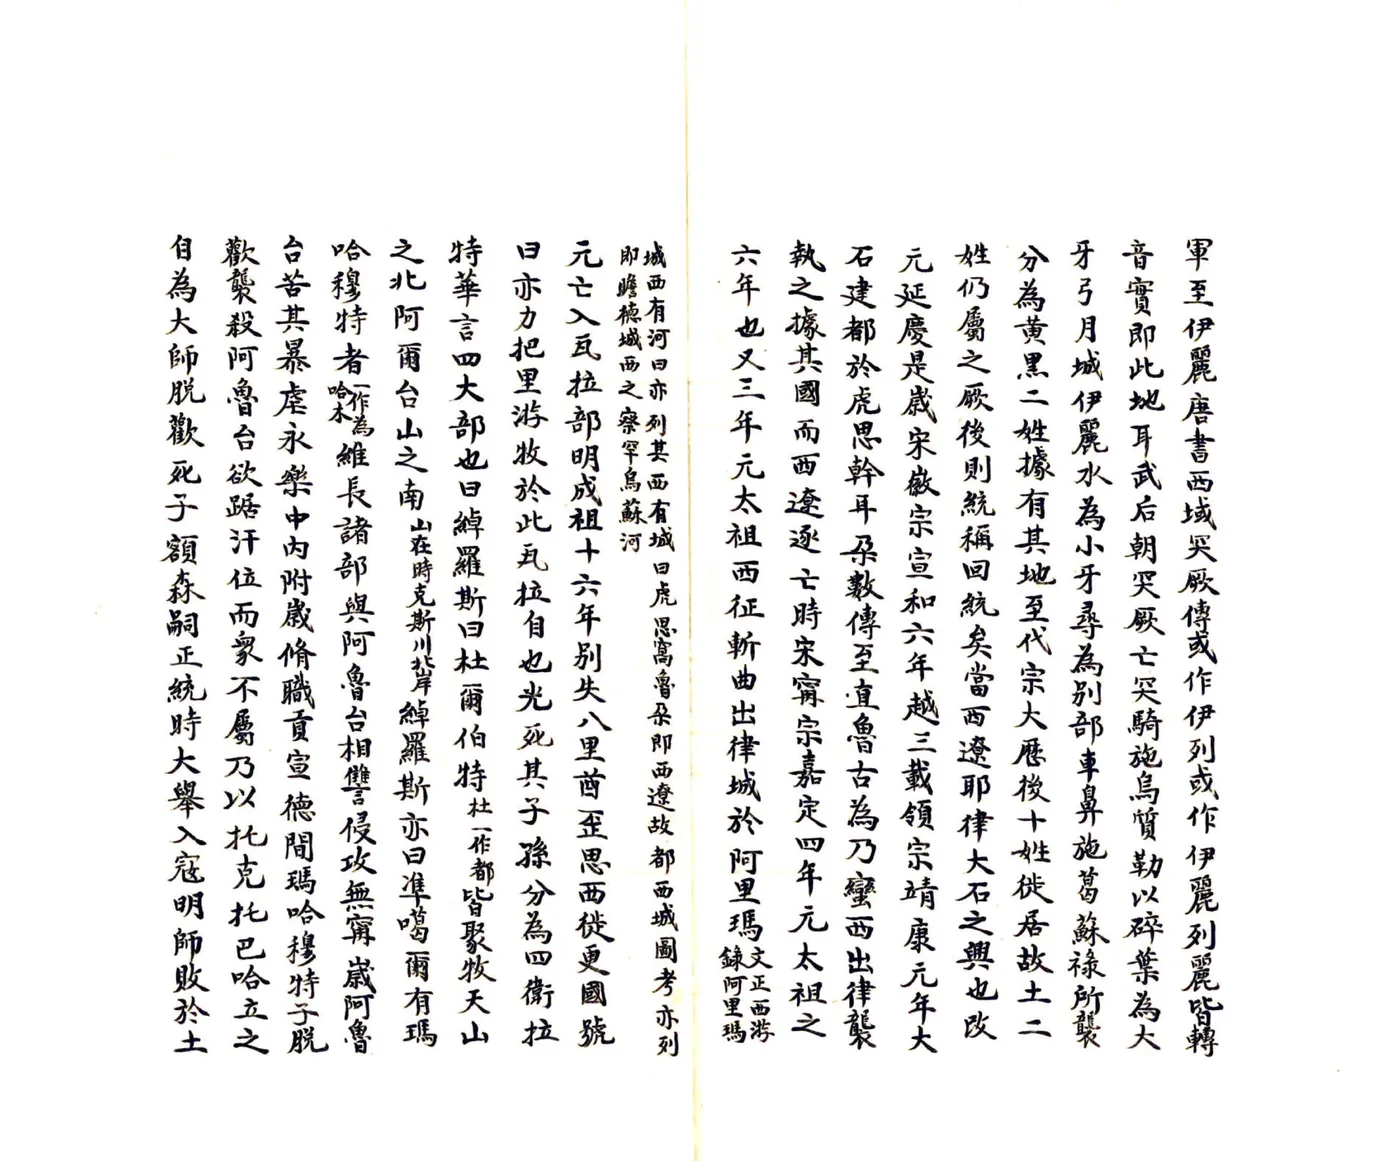 軍至伊麗唐書西域突厥傳或作伊列或作伊麗列麗皆轉
音實即此地耳武后朝突厥亡突騎施烏質勒以碎葉為大
牙弓月城伊麗水為小牙尋為別部車鼻施葛蘇祿所襲
分為黃黑二姓據有其地至代宗大歷後十姓徙居故土二
姓仍屬之厥後則統稱回統矣當西遼耶律大石之興也改
元延慶是歲宋徽宗宣和六年越三載領宗靖康元年大
石建都於虎思斡耳朶數傳至直魯古為乃蠻西出律襲
執之據其國而西遼逐亡時宋甯宗嘉定四年元太祖之
六年也又三年元太祖西征斬曲出律城於阿里瑪文正西游
錄阿里瑪
城西有河曰亦列其西有城曰虎思窩魯朶即西遼故都西城圖考亦列
即瞻德城西之察罕烏蘇河
元亡入瓦拉部明成祖十六年別失八里酋歪思西徙更國號
曰亦力把里游牧於此瓦拉自也先死其子孫分為四衛拉
特華言四大部也曰綽羅斯曰杜爾伯特杜一作都皆聚牧天山
之北阿爾台山之南山在時克斯川北岸綽羅斯亦曰準噶爾有瑪
哈穆特者一作為哈木維長諸部與阿魯台相讐侵攻無甯歲阿魯
台苦其暴虐永樂中內附歲脩職貢宣德間瑪哈穆特子脫
歡襲殺阿魯台欲踞汗位而衆不屬乃以托克托巴哈立之
自為大師脫歡死子額森嗣正統時大舉入寇明師敗於土